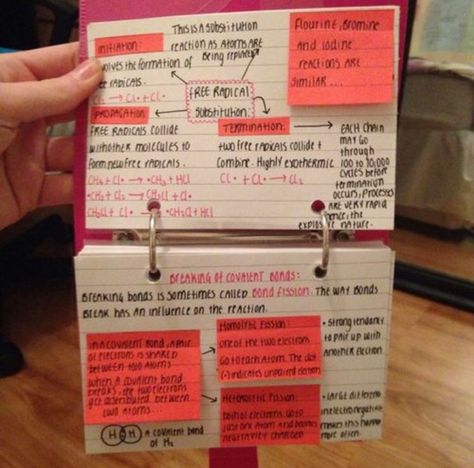 THIS IS A SUBSTITUTION
REACTION AS ATOMS ARE
BEING REPLACED
INITIATION:
INVOLVES THE FORMATION OF
RADICALS.
Cl₂ → Cl• + Cl•
FREE RADICAL
SUBSTITUTION:
FLOURINE, BROMINE
AND IODINE
REACTIONS ARE
SIMILAR...
PROPAGATION
FREE RADICALS COLLIDE
WITH OTHER MOLECULES TO
FORM NEW FREE RADICALS.
CH₄ + Cl• → •CH₃ + HCl
•CH₃ + Cl₂ → CH₃Cl + Cl•
CH₃Cl + Cl• → •CH₂Cl + HCl
TERMINATION:
TWO FREE RADICALS COLLIDE +
COMBINE. HIGHLY EXOTHERMIC
Cl• + Cl• → Cl₂
EACH CHAIN
MAY GO
THROUGH
100 TO 10,000
CYCLES BEFORE
TERMINATION
OCCURS, PROCESSES
ARE VERY RAPID
HENCE, THE
EXPLOSIVE NATURE.
BREAKING OF COVALENT BONDS:
BREAKING BONDS IS SOMETIMES CALLED BOND FISSION. THE WAY BONDS
BREAK HAS AN INFLUENCE ON THE REACTION.
IN A COVALENT BOND, A PAIR
OF ELECTRONS IS SHARED
BETWEEN TWO ATOMS
WHEN A COVALENT BOND
BREAKS, THE TWO ELECTRONS
GET DISTRIBUTED BETWEEN
TWO ATOMS...
HOMOLYTIC FISSION:
ONE OF THE TWO ELECTRONS
GO TO EACH ATOM. THE DOT
(•) INDICATES UNPAIRED ELECTRON
• STRONG TENDANCY
TO PAIR UP WITH
ANOTHER ELECTRON
HETEROLYTIC FISSION:
BOTH OF ELECTRONS GO TO
JUST ONE ATOM AND BECOMES
NEGATIVELY CHARGED
• LARGE DIFFERENCE
IN ELECTRONEGATIVITY
MAKES THIS HAPPEN
MORE OFTEN.
H H A COVALENT BOND
OF H₂